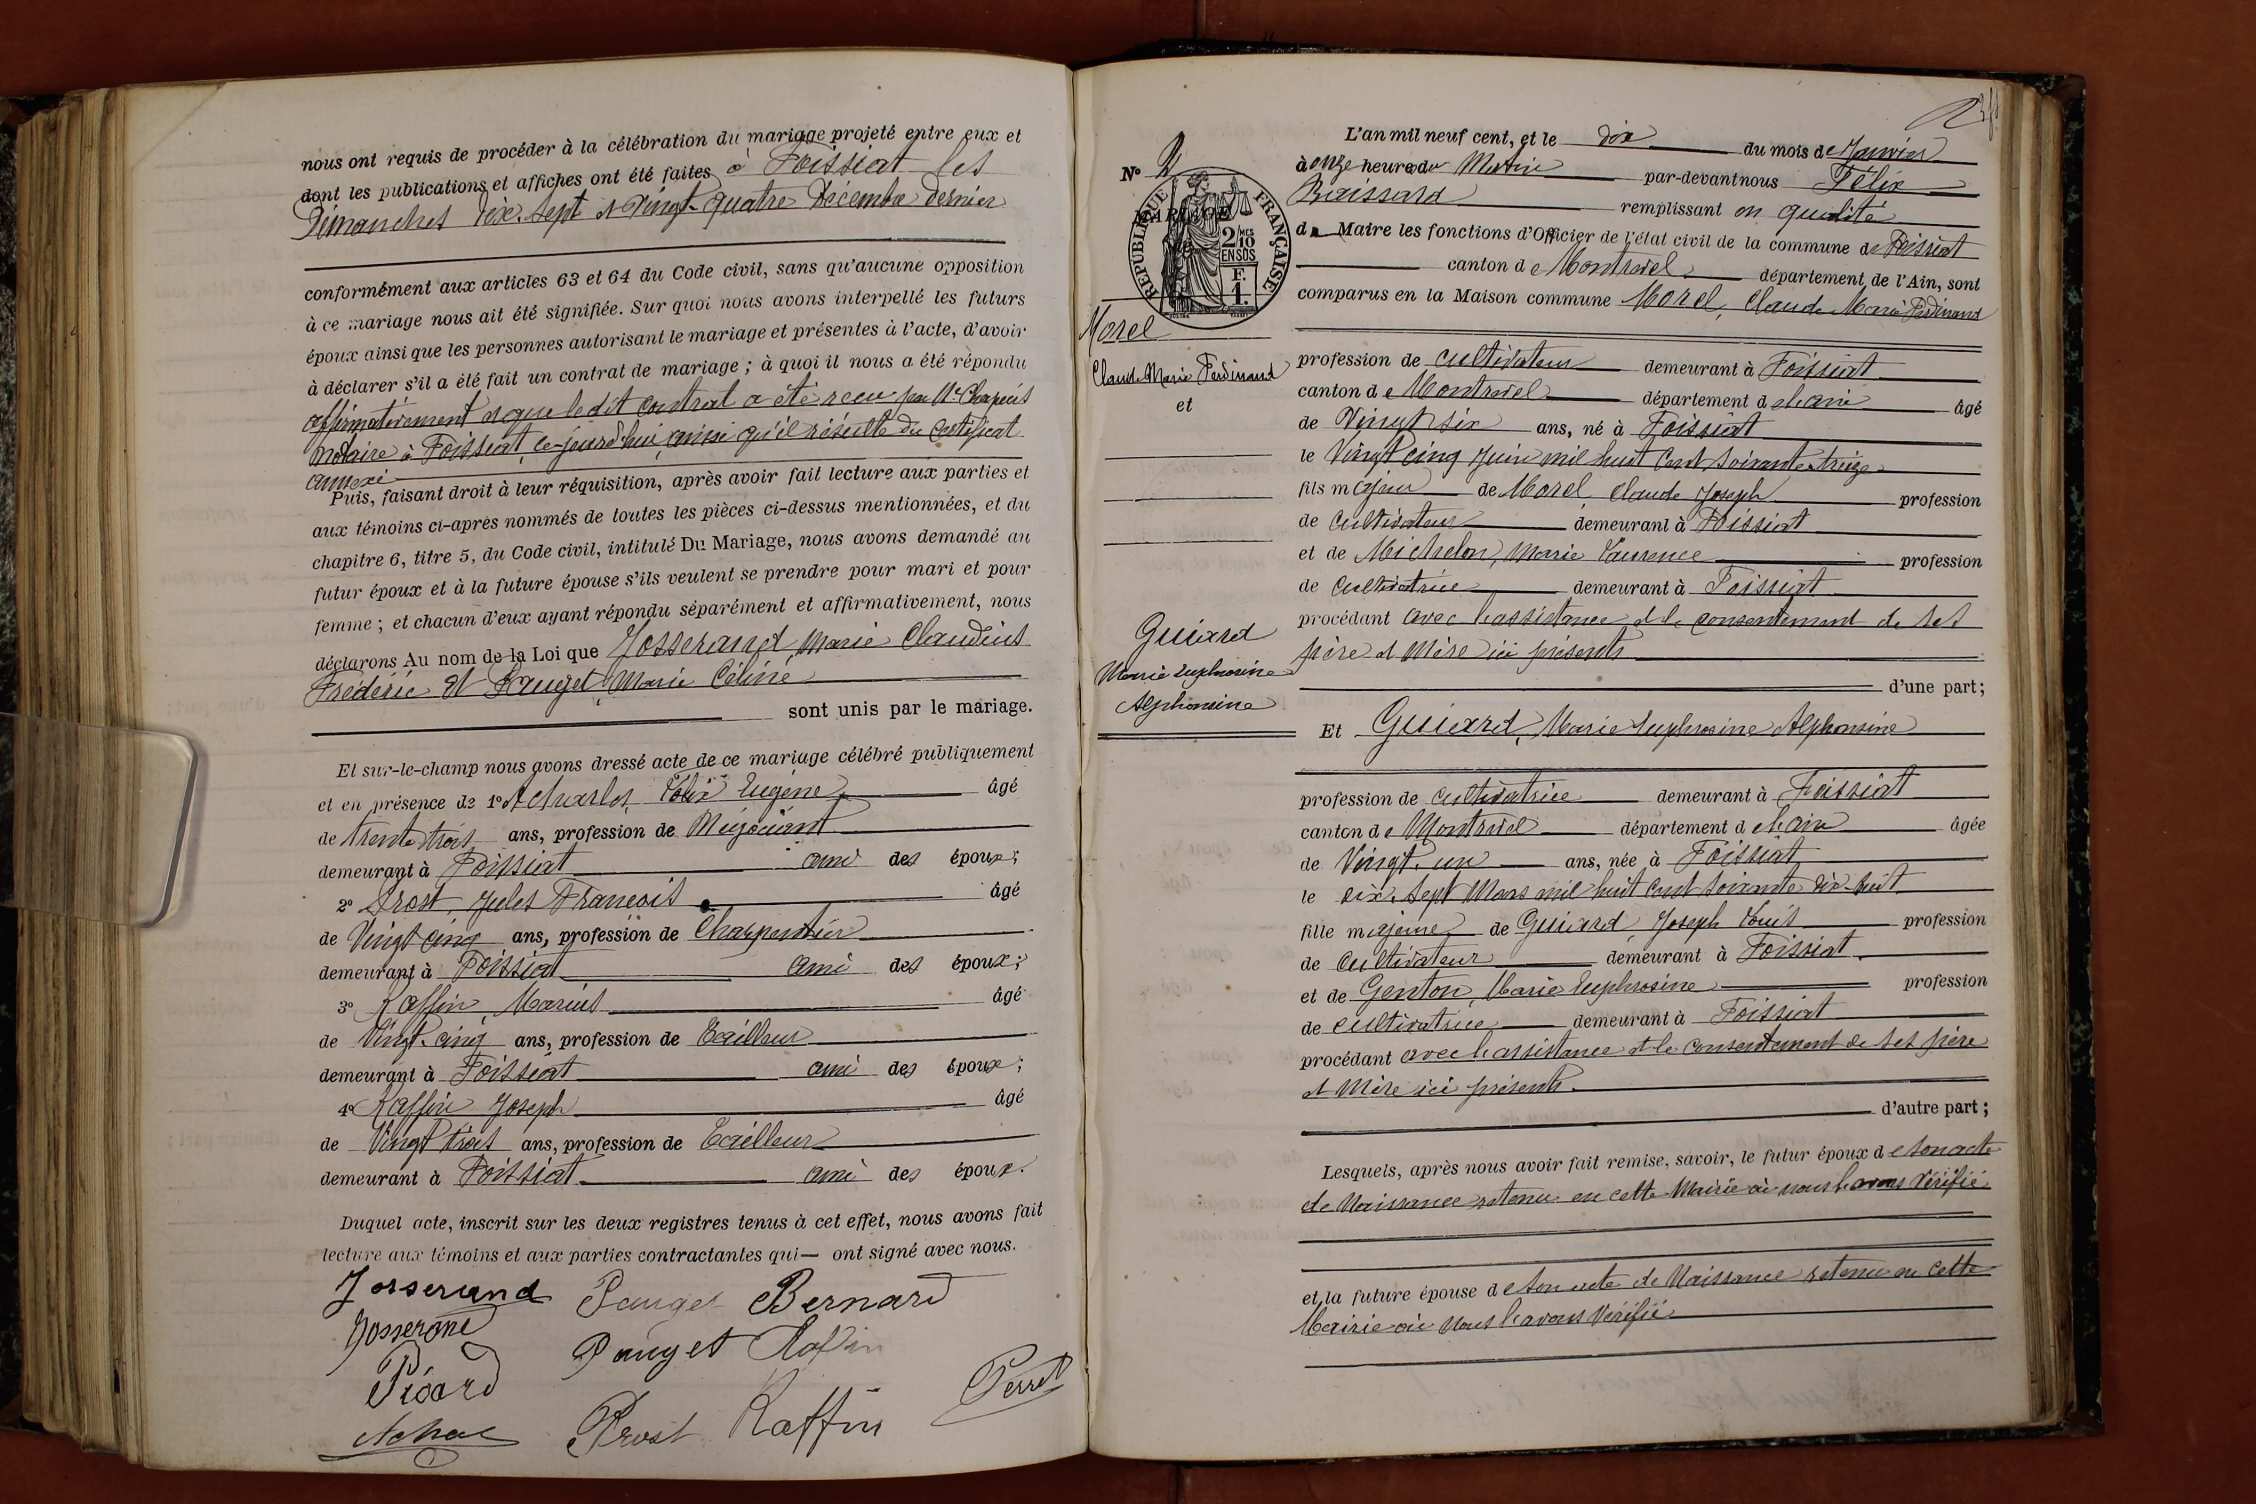 nous ont requis de procéder à la célébration du mariage projeté entre eux et
dont les publications et affiches ont été faites à Foissiat les
Dimanches dix-sept et Vingt-quatre Décembre dernier
conformément aux articles 63 et 64 du Code civil, sans qu'aucune opposition
à ce mariage nous ait été signifiée. Sur quoi nous avons interpellé les futurs
époux ainsi que les personnes autorisant le mariage et présentes à l'acte, d'avoir
à déclarer s'il a été fait un contrat de mariage ; à quoi il nous a été répondu
affirmativement et que ledit contrat a été reçu par Me Chapuis
Notaire à Foissiat, ce-jourd'hui, ainsi qu'il résulte du certificat
annexé
Puis, faisant droit à leur réquisition, après avoir fait lecture aux parties et
aux témoins ci-après nommés de toutes les pièces ci-dessus mentionnées, et du
chapitre 6, titre 5, du Code civil, intitulé Du Mariage, nous avons demandé au
futur époux et à la future épouse s'ils veulent se prendre pour mari et pour
femme ; et chacun d'eux ayant répondu séparément et affirmativement, nous
déclarons Au nom de la Loi que Josserand, Marie Claudius
Frédéric Et Pauget, Marie Céline
sont unis par le mariage.
Et sur-le-champ nous avons dressé acte de ce mariage célébré publiquement
et en présence de 1° Félix Eugène âgé
de trente trois ans, profession de Négociant
demeurant à Foissiat ami des époux ;
2° Prost, Jules François âgé
de Vingt cinq ans, profession de Charpentier
demeurant à Foissiat ami des époux ;
3° Raffin, Marius âgé
de Vingt-cinq ans, profession de Tailleur
demeurant à Foissiat ami des époux ;
4° Raffin Joseph âgé
de Vingt trois ans, profession de Tailleur
demeurant à Foissiat ami des époux.
Duquel acte, inscrit sur les deux registres tenus à cet effet, nous avons fait
lecture aux témoins et aux parties contractantes qui — ont signé avec nous.
Josserand Pauget Bernard
Josserand Pauget Raffin
Picard Perret
Prost Raffin
N° 2
MARIAGE
RÉPUBLIQUE FRANÇAISE
2/10 MES
EN SUS
F.
1.
Morel
Claude Marie Ferdinand
et
Guiard
Marie Euphrosine
Alphonsine
L'an mil neuf cent, et le dix du mois de Janvier
à onze heures du Matin par-devant nous Félix
remplissant en qualité
de Maire les fonctions d'Officier de l'état civil de la commune de Foissiat
canton de Montrevel département de l'Ain, sont
comparus en la Maison commune Morel, Claude Marie Ferdinand
profession de cultivateur demeurant à Foissiat
canton de Montrevel département de l'ain âgé
de Vingt six ans, né à Foissiat
le Vingt cinq Juin mil huit cent soixante treize
fils majeur de Morel Claude Joseph profession
de Cultivateur demeurant à Foissiat
et de Michelon, Marie Laurence profession
de Cultivatrice demeurant à Foissiat
procédant avec l'assistance et le consentement de ses
père et Mère ici présents
d'une part ;
Et Guiard, Marie Euphrosine Alphonsine
profession de cultivatrice demeurant à Foissiat
canton de Montrevel département de l'ain âgée
de Vingt-un ans, née à Foissiat
le dix-sept Mars mil huit cent soixante dix-huit
fille majeure de Guiard Joseph Louis profession
de Cultivateur demeurant à Foissiat
et de Genton, Marie Euphrosine profession
de cultivatrice demeurant à Foissiat
procédant avec l'assistance et le consentement de ses père
et Mère ici présents.
d'autre part ;
Lesquels, après nous avoir fait remise, savoir, le futur époux de son acte
de Naissance retenu en cette Mairie où nous l'avons Vérifié
et la future épouse de son acte de Naissance retenu en cette
Mairie où nous l'avons Vérifié